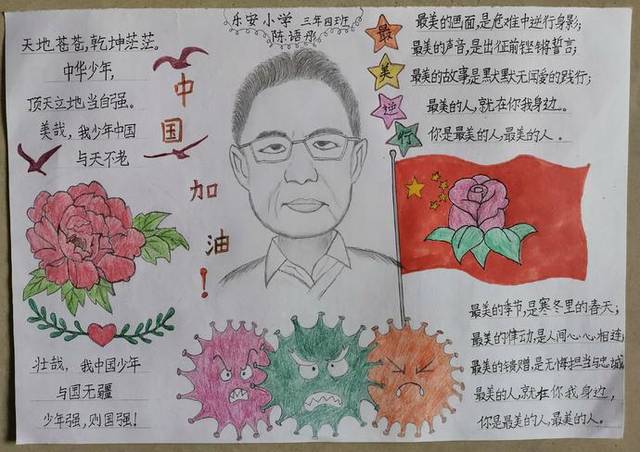 乐安小学 三年四班
陈语彤
天地苍苍,乾坤茫茫。
中华少年,
顶天立地,当自强。
美哉,我少年中国
与天不老
中国加油!
最美逆行
最美的画面,是危难中逆行身影;
最美的声音,是出征前铿锵誓言;
最美的故事是默默无闻爱的践行;
最美的人,就在你我身边。
你是最美的人,最美的人。
壮哉,我中国少年
与国无疆
少年强,则国强!
最美的季节,是寒冬里的春天;
最美的律动,是人间心心相连
最美的馈赠,是无悔担当与忠诚
最美的人,就在你我身边,
你是最美的人,最美的人。